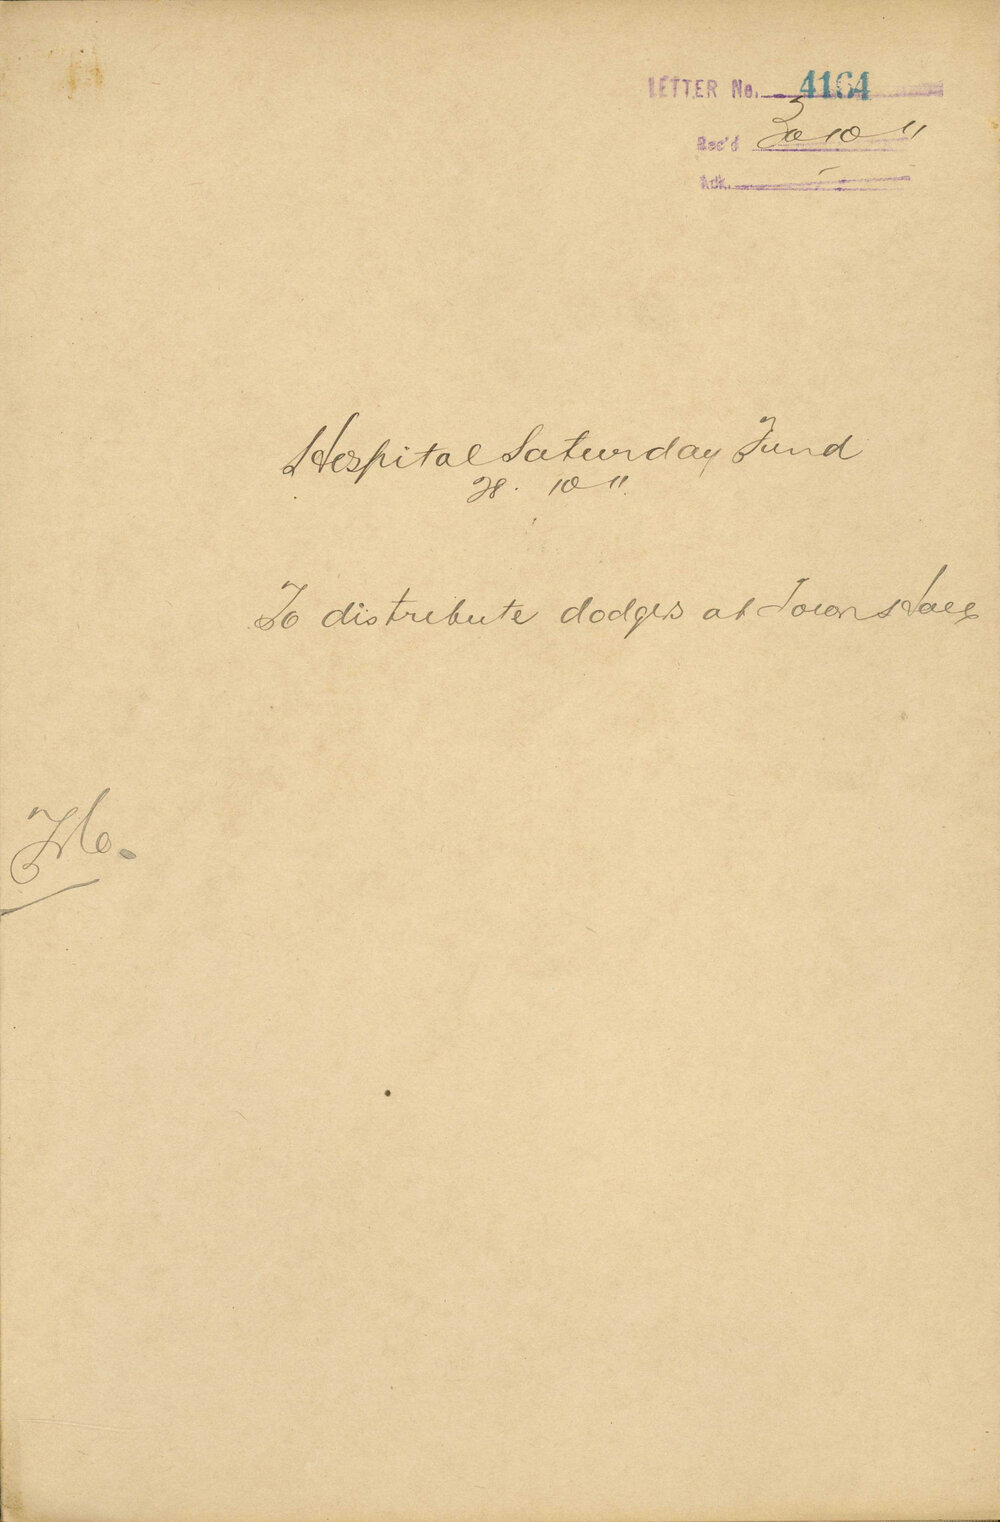 LETTER No. 4164
Rec'd 30 10 11
Ack.
Hospital Saturday Fund
28. 10 11.
To distribute dodges at Town Hall